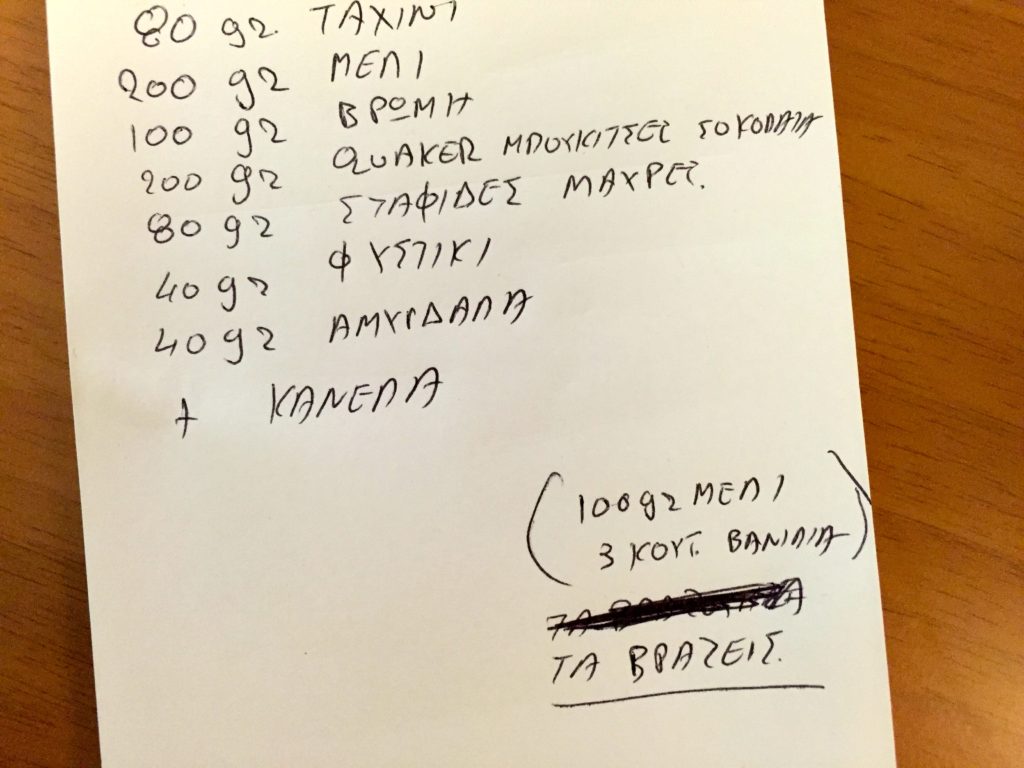 80 gr. ΤΑΧΙΝΙ
200 gr ΜΕΛΙ
100 gr ΒΡΩΜΗ
200 gr QUAKER ΜΠΟΥΚΙΤΣΕΣ ΣΟΚΟΛΑΤΑ
80 gr ΣΤΑΦΙΔΕΣ ΜΑΥΡΕΣ.
40 gr ΦΥΣΤΙΚΙ
40 gr ΑΜΥΓΔΑΛΑ
+ ΚΑΝΕΛΑ
(100 gr ΜΕΛΙ
3 ΚΟΥΤ. ΒΑΝΙΛΙΑ)
ΤΑ ΒΡΑΖΕΙΣ.